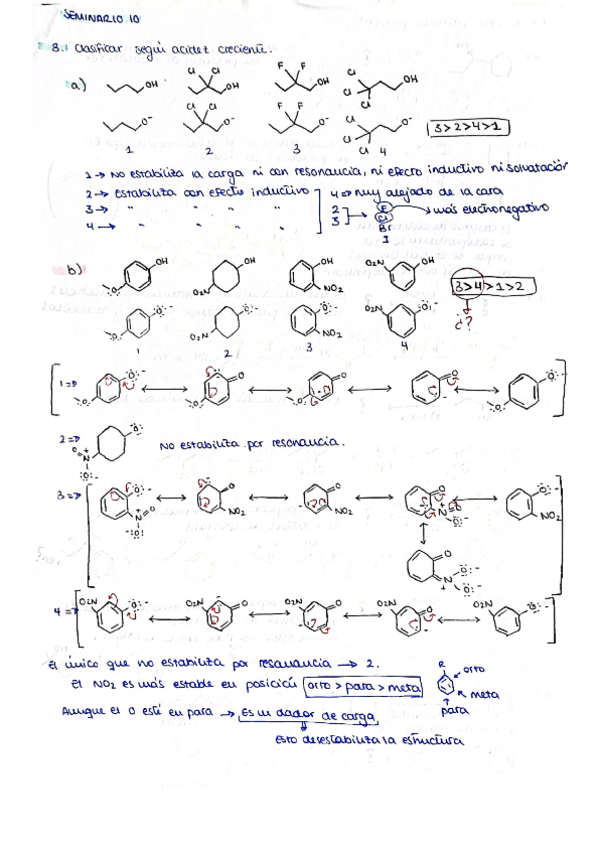 SEMINARIO 10
8.1 Clasificar según acidez creciente.
a) OH Cl Cl OH F F OH Cl Cl Cl OH
O⁻ Cl Cl O⁻ F F O⁻ Cl Cl Cl O⁻
1 2 3 4
3>2>4>1
1 → No estabiliza la carga ni con resonancia, ni efecto inductivo ni solvatación
2 → Estabiliza con efecto inductivo 4 ⇒ Muy alejado de la cara
3 → " " " "
4 → " " " "
2 3 → F Cl Br I → más electronegativo
b) OH O OH O₂N OH NO₂ O₂N OH
3>4>1>2
¿?
O⁻ O O₂N O⁻ O⁻ NO₂ O₂N O⁻
1 2 3 4
1 ⇒
2 ⇒ No estabiliza por resonancia.
3 ⇒ NO₂ NO₂ NO₂
4 ⇒ O₂N O₂N O₂N O₂N O₂N
El único que no estabiliza por resonancia → 2.
El NO₂ es más estable en posición orto > para > meta
R orto meta para
Aunque el O esté en para → Es un dador de carga
Esto desestabiliza la estructura